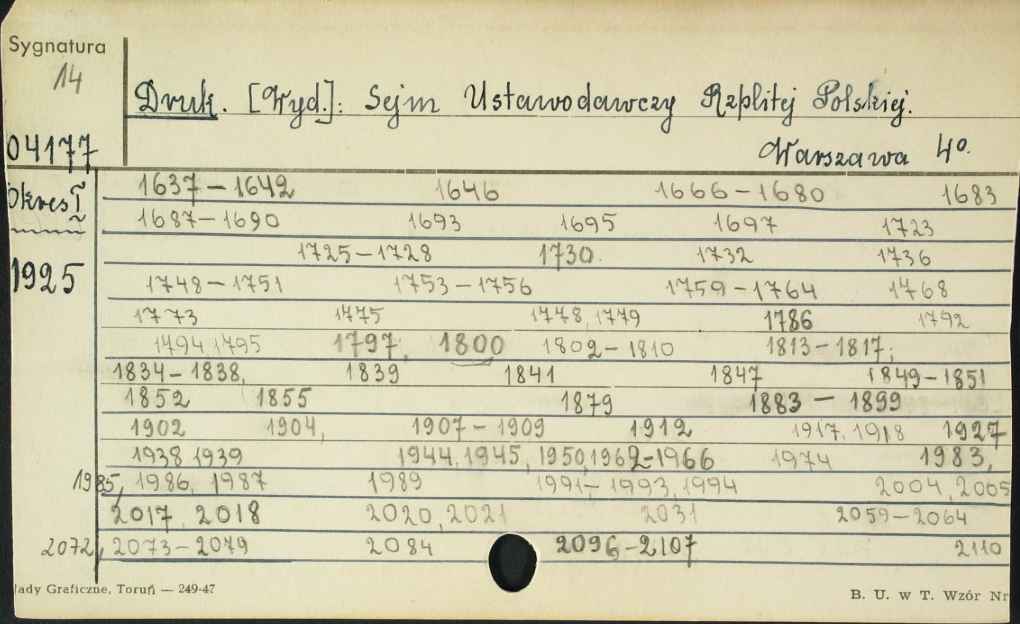 Sygnatura
14
Druk. [Wyd.]: Sejm Ustawodawczy Rzplitej Polskiej.
04177
Warszawa 4°.
Okres I
1925
1637-1642 1646 1666-1680 1683
1687-1690 1693 1695 1697 1723
1725-1728 1730. 1732 1736
1748-1751 1753-1756 1759-1764 1768
1773 1775 1778, 1779 1786 1792
1794, 1795 1797, 1800 1802-1810 1813-1817;
1834-1838, 1839 1841 1847 1849-1851
1852 1855 1879 1883-1899
1902 1904, 1907-1909 1912 1917, 1918 1927
1938 1939 1944, 1945, 1950, 1962-1966 1974 1983,
1985, 1986, 1987 1989 1991-1993, 1994 2004, 2005
2017, 2018 2020, 2021 2031 2059-2064
2072, 2073-2079 2084 2096-2107 2110
łady Graficzne, Toruń — 249-47
B. U. w T. Wzór Nr